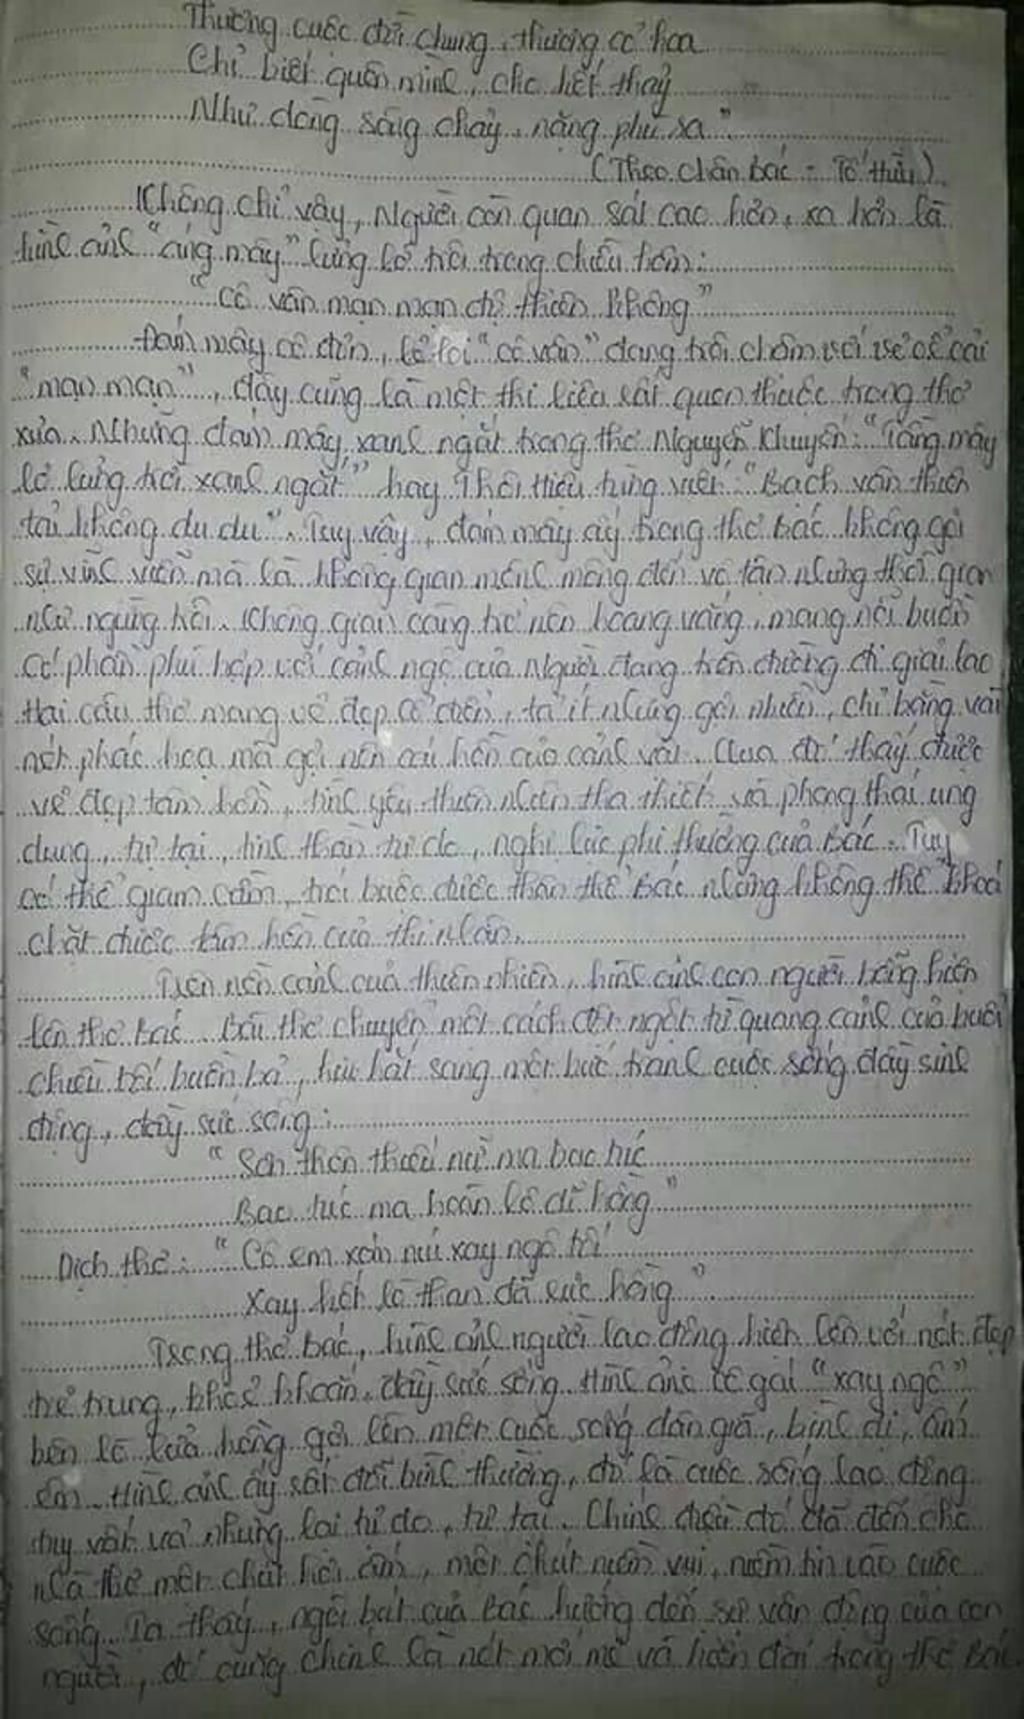 Thương cuộc đời chung, thương cỏ hoa
Chỉ biết quên mình, cho hết thảy
Như dòng sông chảy, nặng phù sa".
(Theo chân bác - Tố Hữu)
Không chỉ vậy, Người còn quan sát cao hơn, xa hơn là
hình ảnh "áng mây" lửng lơ trôi trong chiều hôm:
"Cô vân mạn mạn độ thiên không"
Đám mây cô đơn, lẻ loi "cô vân" đang trôi chầm với vẻ uể oải
"mạn mạn", đây cũng là một thi liệu rất quen thuộc trong thơ
xưa. Những đám mây xanh ngắt trong thơ Nguyễn Khuyến: "Tầng mây
lơ lửng trời xanh ngắt" hay Thôi Hiệu từng viết: "Bạch vân thiên
tải không du du". Tuy vậy, đám mây ấy trong thơ Bác không gợi
sự vĩnh viễn mà là không gian mênh mông đến vô tận nhưng thời gian
như ngừng trôi. Không gian càng trở nên hoang vắng, mang nỗi buồn
có phần phù hợp với cảnh ngộ của Người đang trên đường đi giải lao
Hai câu thơ mang vẻ đẹp cổ điển, tả ít nhưng gợi nhiều, chỉ bằng vài
nét phác họa mà gợi nên cái hồn của cảnh vật. Qua đó thấy được
vẻ đẹp tâm hồn, tình yêu thiên nhiên tha thiết và phong thái ung
dung, tự tại, tinh thần tự do, nghị lực phi thường của Bác. Tuy
có thể giam cầm, trói buộc được thân thể Bác nhưng không thể khoá
chặt được tâm hồn của thi nhân.
Trên nền cảnh của thiên nhiên, hình ảnh con người bỗng hiện
lên thơ Bác. Bài thơ chuyển một cách đột ngột từ quang cảnh của buổi
chiều tối buồn bã, hiu hắt sang một bức tranh cuộc sống đầy sinh
động, đầy sức sống:
"Sơn thôn thiếu nữ ma bao túc
Bao túc ma hoàn lô dĩ hồng"
Dịch thơ: "Cô em xóm núi xay ngô tối
Xay hết lò than đã rực hồng"
Trong thơ bác, hình ảnh người lao động hiện lên với nét đẹp
trẻ trung, khoẻ khoắn, đầy sức sống. Hình ảnh cô gái "xay ngô"
bên lò lửa hồng gợi lên một cuộc sống dân giã, bình dị, ấm
êm. Hình ảnh ấy rất đỗi bình thường, đó là cuộc sống lao động
tuy vất vả nhưng lại tự do, tự tại. Chính điều đó đã đến cho
nhà thơ một chút hơi ấm, một chút niềm vui, niềm tin vào cuộc
sống. Ta thấy, ngòi bút của Bác hướng đến sự vận động của con
người, đó cũng chính là nét mới mẻ và hiện đại trong thơ Bác.